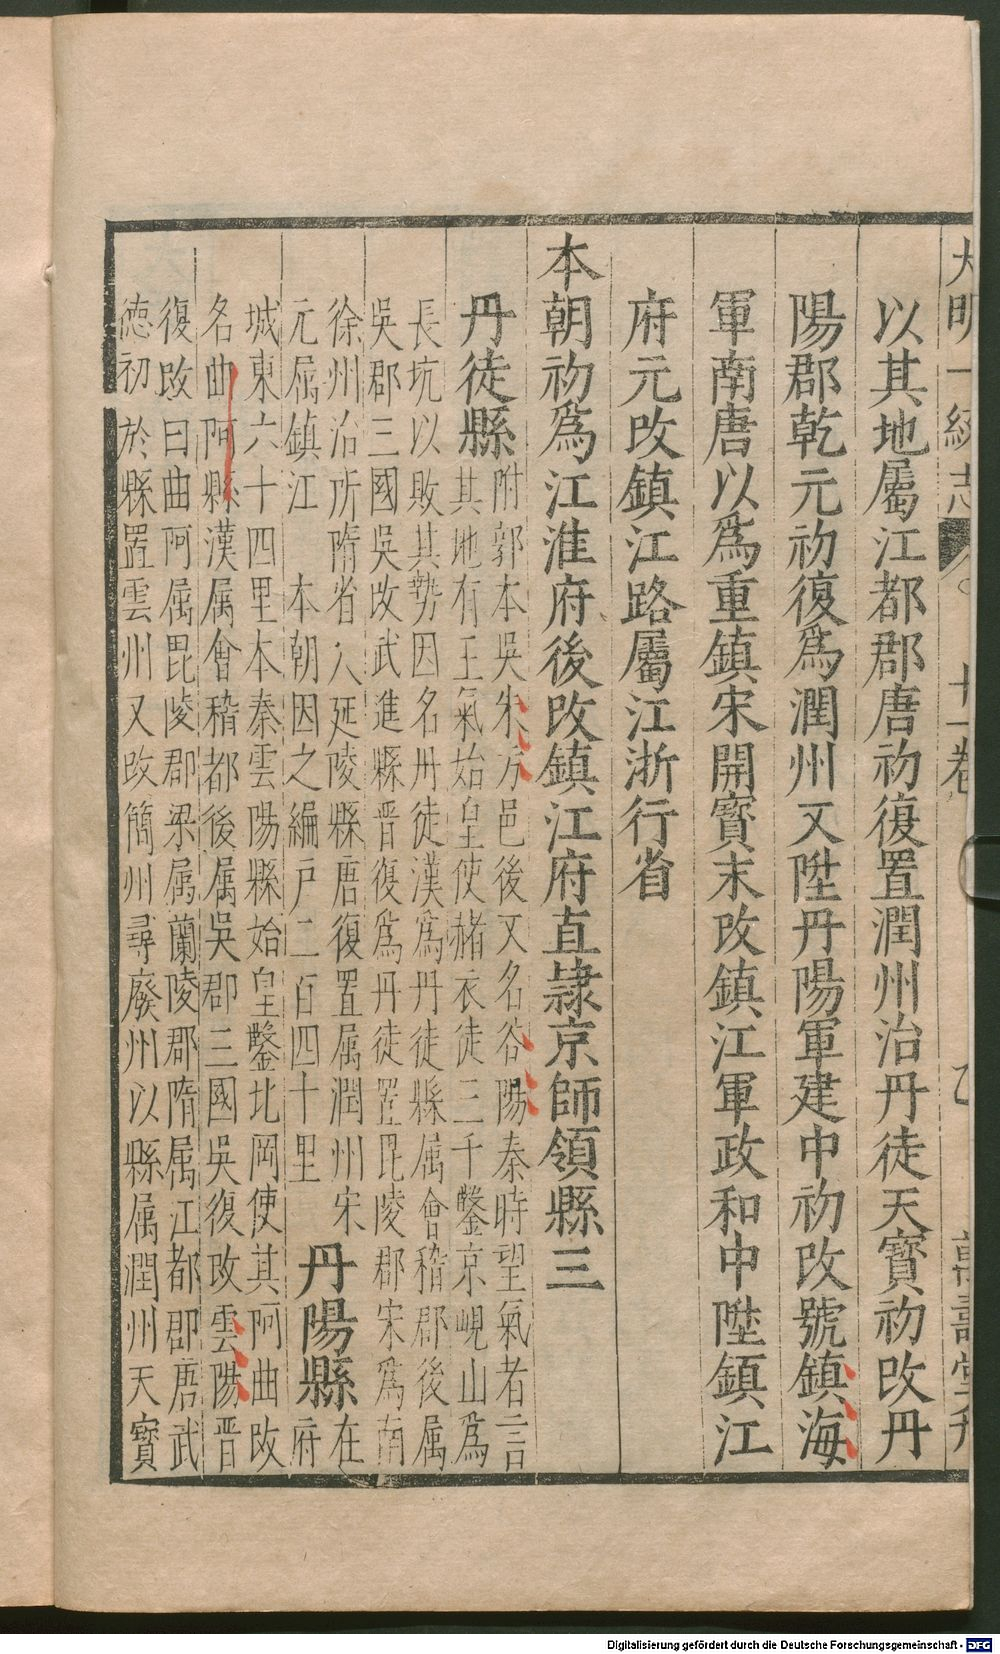 大明一統志 十一卷 乙 萬壽堂刋
以其地屬江都郡唐初復置潤州治丹徒天寳初改丹
陽郡乾元初復爲潤州又陞丹陽軍建中初改號鎮海
軍南唐以爲重鎮宋開寳末改鎮江軍政和中陞鎮江
府元改鎮江路屬江浙行省
本朝初爲江淮府後改鎮江府直隷京師領縣三
丹徒縣
附郭本吳朱方邑後又名谷陽秦時望氣者言
其地有王氣始皇使赭衣徒三千鑿京峴山爲
長坑以敗其勢因名丹徒漢爲丹徒縣属會稽郡後属
吳郡三國吳改武進縣晉復爲丹徒置毘陵郡宋爲南
徐州治所隋省入延陵縣唐復置属潤州宋
元属鎮江 本朝因之編戶二百四十里
丹陽縣
在
府
城東六十四里本秦雲陽縣始皇鑿北岡使其阿曲改
名曲阿縣漢属會稽都後属吳郡三國吳復改雲陽晉
復改曰曲阿属毘陵郡梁属蘭陵郡隋属江都郡唐武
徳初於縣置雲州又改簡州尋廢州以縣属潤州天寳
Digitalisierung gefördert durch die Deutsche Forschungsgemeinschaft - DFG